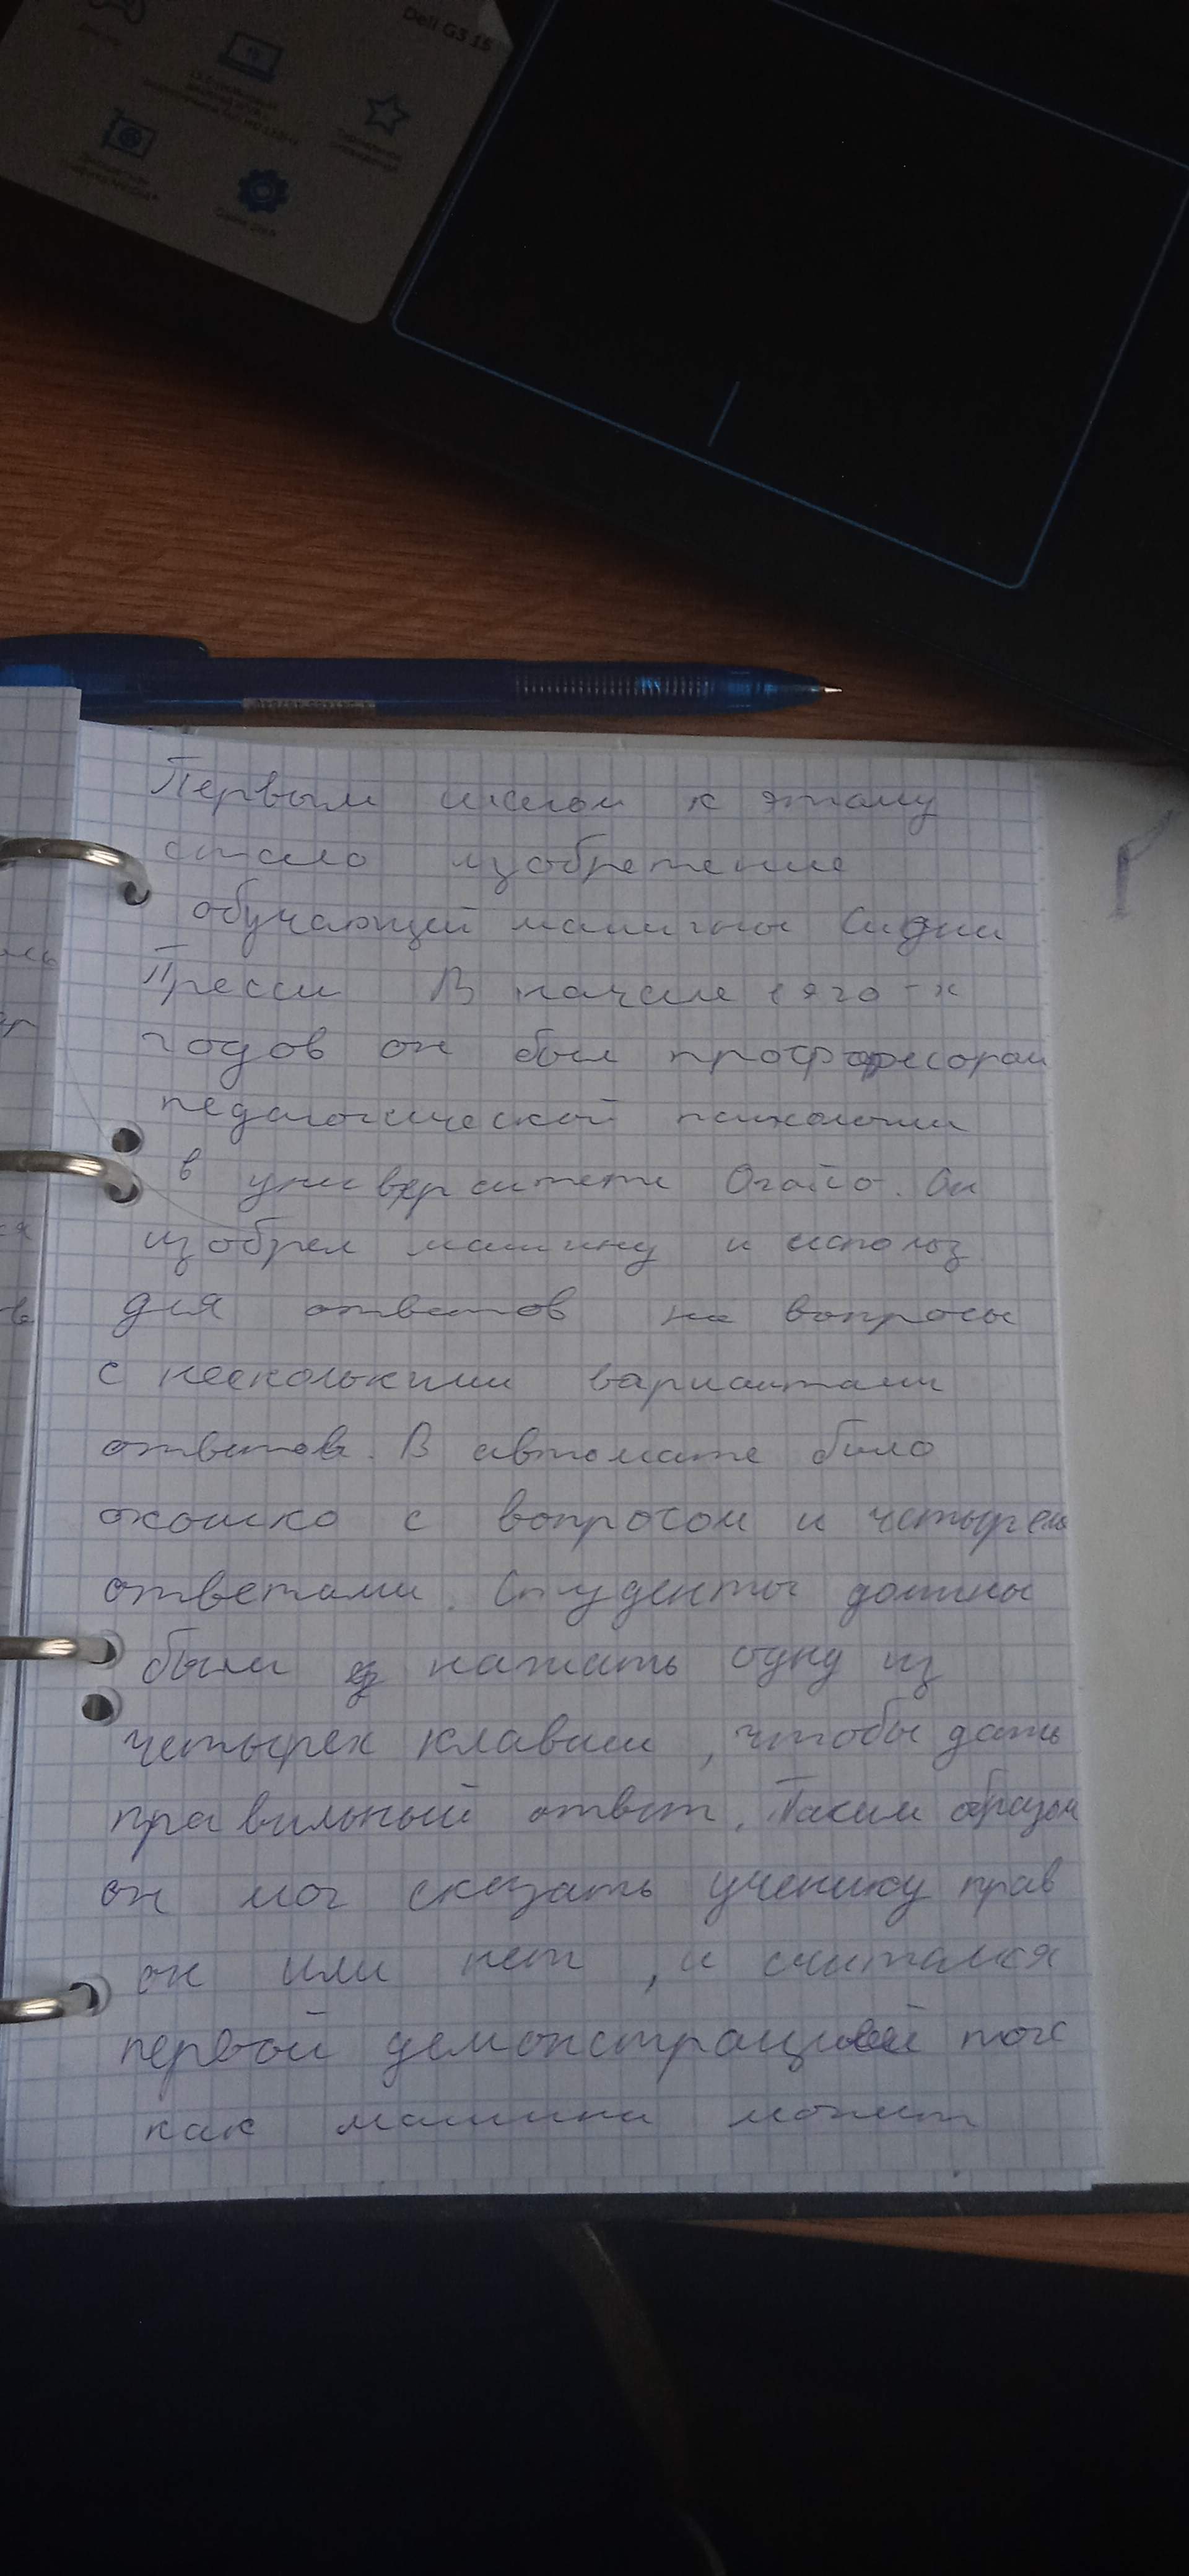 Dell G3 15
Первым шагом к этому
стало изобретение
обучающей машины Сидни
Пресси В начале 1920-х
годов он был профффесором
педагогической психологии
в университете Огайо. Он
изобрел машину и использ
для ответов на вопросы
с несколькими вариантами
ответов. В автомате было
окошко с вопросом и четырем
ответами. Студенты должны
были нажать одну из
четырех клавиш, чтобы дать
правильный ответ. Таким образом
он мог сказать ученику прав
он или нет, и считался
первой демонстрацией того
как машина может